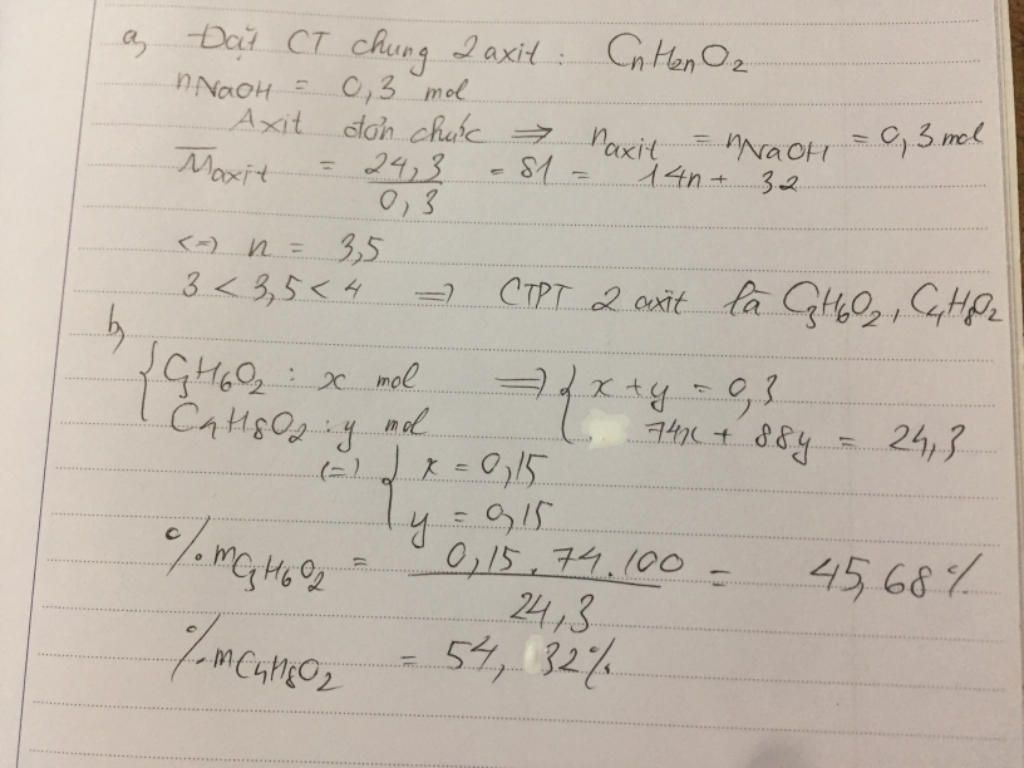 a, Đặt CT chung 2 axit : CnH2nO2
nNaOH = 0,3 mol
Axit đơn chức => naxit = nNaOH = 0,3 mol
M̅axit = 24,3/0,3 = 81 = 14n + 32
<=> n = 3,5
3 < 3,5 < 4 => CTPT 2 axit là C3H6O2, C4H8O2
b,
{ C3H6O2 : x mol => { x + y = 0,3
C4H8O2 : y mol 74x + 88y = 24,3
(=) { x = 0,15
y = 0,15
%mC3H6O2 = 0,15.74.100/24,3 = 45,68%
%mC4H8O2 = 54,32%